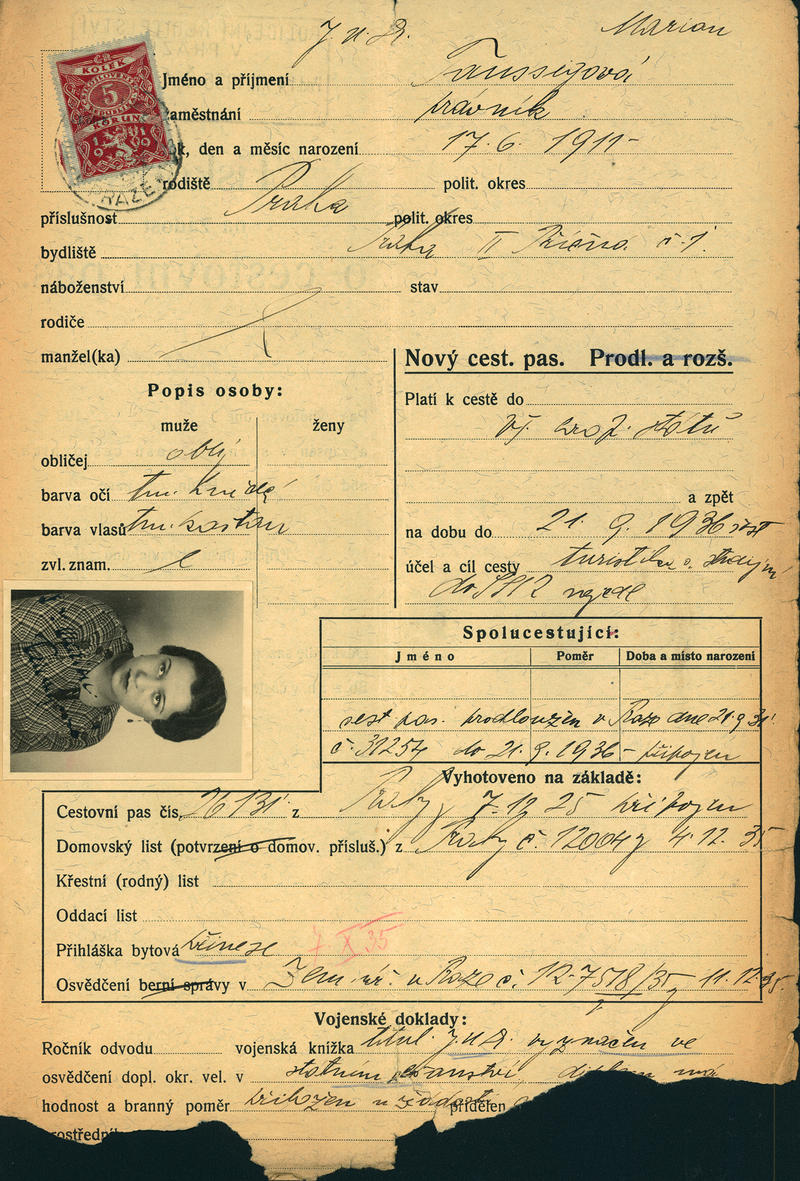 J.U.Dr. Marion
Jméno a příjmení Taussigová
zaměstnání právník
rok, den a měsíc narození 17. 6. 1911
rodiště Praha polit. okres
příslušnost polit. okres
bydliště Praha II Příčná č. 1.
náboženství stav
rodiče
manžel(ka)
KOLEK
5
KORUN
1919
Nový cest. pas. Prodl. a rozš.
Popis osoby:
muže ženy
obličej oblý
barva očí tm. hnědé
barva vlasů tm. kaštan
zvl. znam.
Platí k cestě do
vš. evrop. států
a zpět
na dobu do 21. 9. 1936
účel a cíl cesty turistika
do SSSR nejede
Spolucestující:
Jméno Poměr Doba a místo narození
cest. pas. prodloužen v Praze dne 21. 9. 31.
č. 31254 do 21. 9. 1936 - připojen
Vyhotoveno na základě:
Cestovní pas čís. 26131 z Prahy 7. 12 25 připojen
Domovský list (potvrzení o domov. přísluš.) z Prahy č. 12004 z 4. 12. 35
Křestní (rodný) list
Oddací list
Přihláška bytová přinese 7 X 35
Osvědčení berní správy v Zem. úř. v Praze č. 12-7518/35 z 11. 12. 35.
Vojenské doklady:
Ročník odvodu vojenská knížka titul J.U.Dr. vyznačen ve
osvědčení dopl. okr. vel. v státním občanství, diplom
hodnost a branný poměr přidělen
prostředník